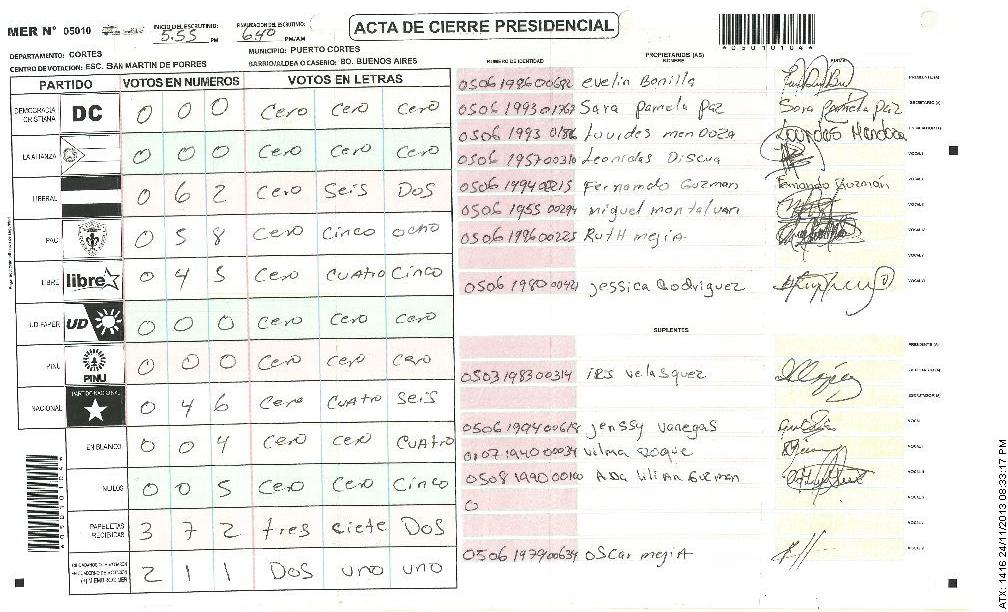 MER N° 05010
INICIO DEL ESCRUTINIO: 5:55 PM
FINALIZACION DEL ESCRUTINIO: 6:40 PM/AM
ACTA DE CIERRE PRESIDENCIAL
A05010104A
DEPARTAMENTO: CORTES
MUNICIPIO: PUERTO CORTES
CENTRO DE VOTACION: ESC. SAN MARTIN DE PORRES
BARRIO/ALDEA O CASERIO: BO. BUENOS AIRES
PARTIDO VOTOS EN NUMEROS VOTOS EN LETRAS
DEMOCRACIA CRISTIANA DC 0 0 0 Cero Cero Cero
LA ALIANZA 0 0 0 Cero Cero Cero
LIBERAL 0 6 2 Cero Seis Dos
PAC 0 5 8 Cero Cinco ocho
LIBRE libre 0 4 5 Cero Cuatro Cinco
UD-FAPER UD 0 0 0 Cero Cero Cero
PINU PINU 0 0 0 Cero Cero Cero
NACIONAL PARTIDO NACIONAL 0 4 6 Cero Cuatro Seis
EN BLANCO 0 0 4 Cero Cero Cuatro
NULOS 0 0 5 Cero Cero Cinco
PAPELETAS RECIBIDAS 3 7 2 tres siete Dos
2 1 1 Dos uno uno
NUMERO DE IDENTIDAD
PROPIETARIOS (AS)
NOMBRE
FIRMA
evelin Bonilla PRESIDENTE (A)
0506 1993 01767 Sara pamela paz Sara Pamela Paz SECRETARIO (A)
0506 1993 Lourdes mendoza Lourdes Mendoza ESCRUTADOR (A)
0506 195700310 Leonidas Discua VOCAL I
Fernando Guzman Fernando Guzmán VOCAL II
0506 1955 00294 miguel montalvan
0506 199600225 Ruth mejia
jessica Rodriguez
SUPLENTES
PRESIDENTE (A)
0503 198300314 iris velasquez SECRETARIO (A)
ESCRUTADOR (A)
jenssy vanegas VOCAL I
vilma Roque
Ada lilian Guzman
0
0506 197900634 oscar mejia
A05010104A
ATX: 1416 24/11/2013 08:33:17 PM